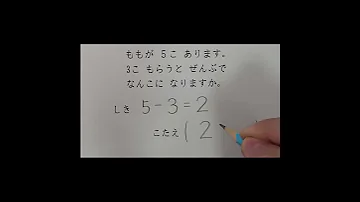 ももが 5こ あります。
3こ もらうと ぜんぶで
なんこに なりますか。
しき 5-3=2
こたえ ( 2